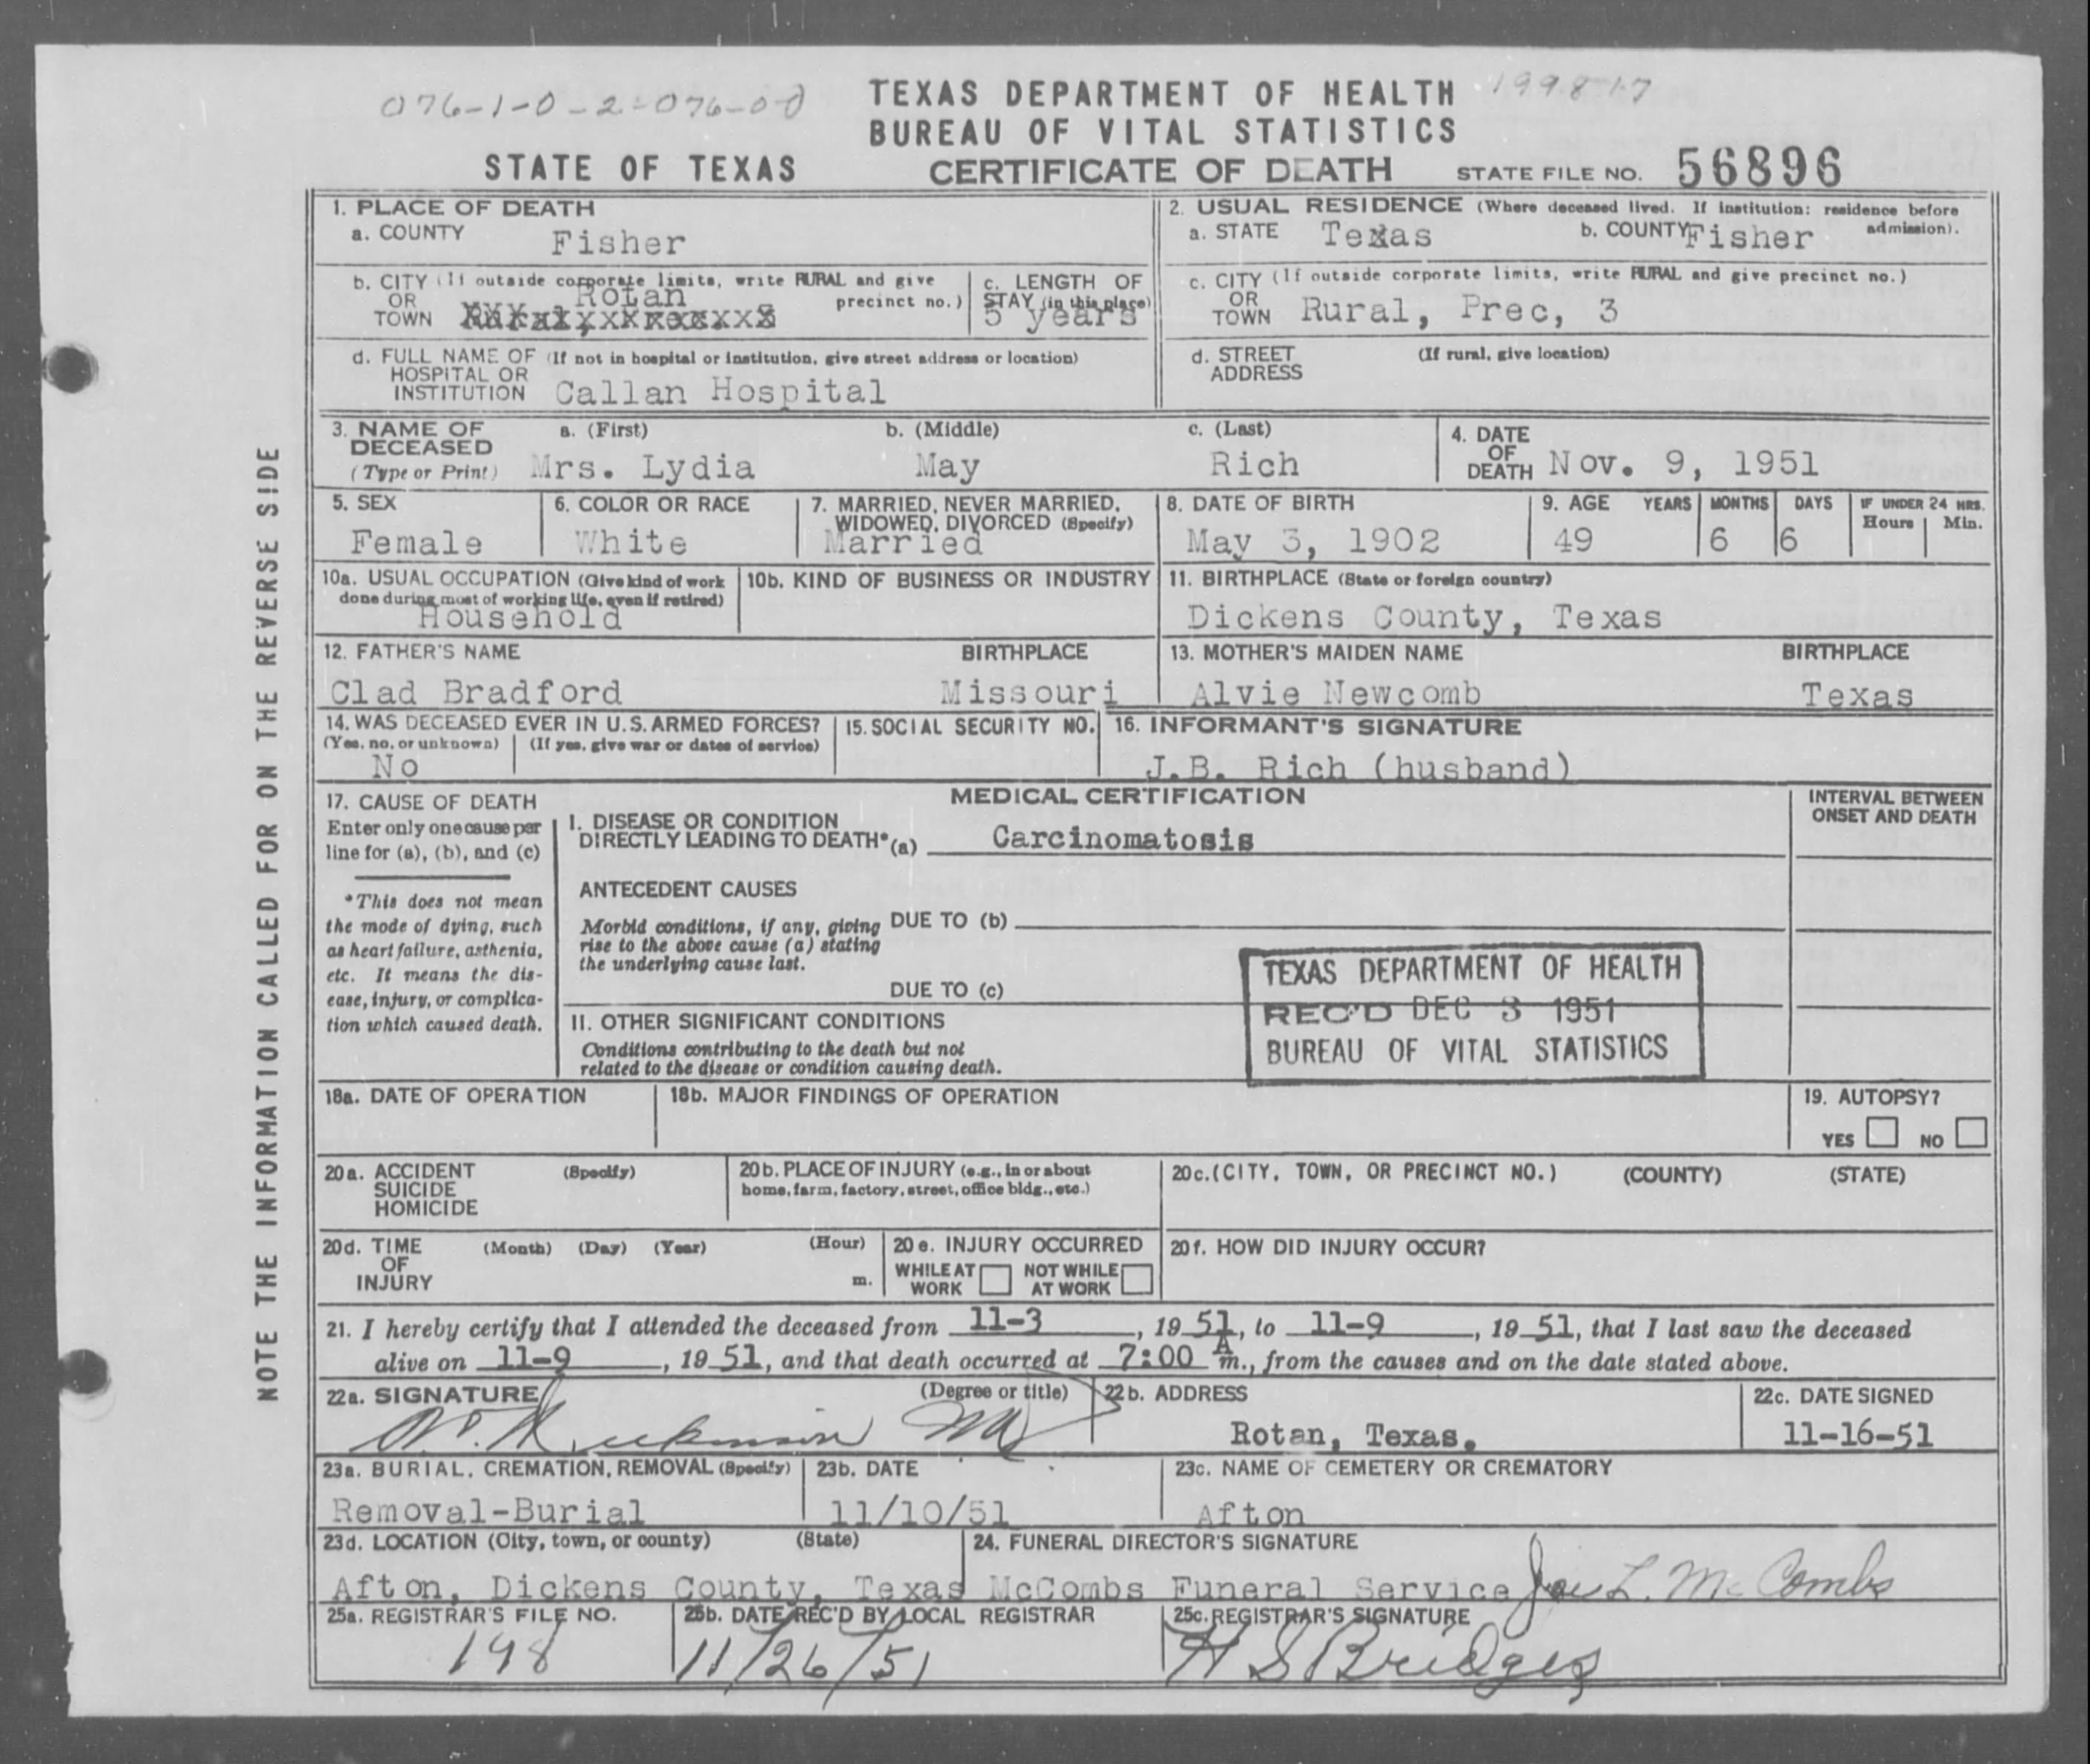 076-1-0-2-076-00
TEXAS DEPARTMENT OF HEALTH
199817
BUREAU OF VITAL STATISTICS
STATE OF TEXAS CERTIFICATE OF DEATH STATE FILE NO. 56896
NOTE THE INFORMATION CALLED FOR ON THE REVERSE SIDE
1. PLACE OF DEATH
a. COUNTY Fisher
b. CITY (If outside corporate limits, write RURAL and give precinct no.)
OR TOWN Rotan
c. LENGTH OF STAY (in this place)
5 years
d. FULL NAME OF HOSPITAL OR INSTITUTION (If not in hospital or institution, give street address or location)
Callan Hospital
2. USUAL RESIDENCE (Where deceased lived. If institution: residence before admission).
a. STATE Texas b. COUNTY Fisher
c. CITY (If outside corporate limits, write RURAL and give precinct no.)
OR TOWN Rural, Prec, 3
d. STREET ADDRESS (If rural, give location)
3. NAME OF DECEASED (Type or Print)
a. (First) b. (Middle) c. (Last)
Mrs. Lydia May Rich
4. DATE OF DEATH Nov. 9, 1951
5. SEX
Female
6. COLOR OR RACE
White
7. MARRIED, NEVER MARRIED, WIDOWED, DIVORCED (Specify)
Married
8. DATE OF BIRTH
May 3, 1902
9. AGE YEARS MONTHS DAYS IF UNDER 24 HRS. Hours Min.
49 6 6
10a. USUAL OCCUPATION (Give kind of work done during most of working life, even if retired)
Household
10b. KIND OF BUSINESS OR INDUSTRY
11. BIRTHPLACE (State or foreign country)
Dickens County, Texas
12. FATHER'S NAME BIRTHPLACE
Clad Bradford Missouri
13. MOTHER'S MAIDEN NAME BIRTHPLACE
Alvie Newcomb Texas
14. WAS DECEASED EVER IN U.S. ARMED FORCES?
(Yes, no, or unknown) (If yes, give war or dates of service)
No
15. SOCIAL SECURITY NO.
16. INFORMANT'S SIGNATURE
J.B. Rich (husband)
17. CAUSE OF DEATH
Enter only one cause per
line for (a), (b), and (c)
*This does not mean
the mode of dying, such
as heart failure, asthenia,
etc. It means the dis-
ease, injury, or complica-
tion which caused death.
MEDICAL CERTIFICATION
INTERVAL BETWEEN ONSET AND DEATH
I. DISEASE OR CONDITION
DIRECTLY LEADING TO DEATH* (a) Carcinomatosis
ANTECEDENT CAUSES
Morbid conditions, if any, giving
rise to the above cause (a) stating
the underlying cause last.
DUE TO (b)
DUE TO (c)
TEXAS DEPARTMENT OF HEALTH
REC'D DEC 3 1951
BUREAU OF VITAL STATISTICS
II. OTHER SIGNIFICANT CONDITIONS
Conditions contributing to the death but not
related to the disease or condition causing death.
18a. DATE OF OPERATION
18b. MAJOR FINDINGS OF OPERATION
19. AUTOPSY?
YES NO
20a. ACCIDENT (Specify)
SUICIDE
HOMICIDE
20b. PLACE OF INJURY (e.g., in or about
home, farm, factory, street, office bldg., etc.)
20c. (CITY, TOWN, OR PRECINCT NO.) (COUNTY) (STATE)
20d. TIME OF INJURY (Month) (Day) (Year) (Hour)
m.
20e. INJURY OCCURRED
WHILE AT WORK NOT WHILE AT WORK
20f. HOW DID INJURY OCCUR?
21. I hereby certify that I attended the deceased from 11-3, 1951, to 11-9, 1951, that I last saw the deceased
alive on 11-9, 1951, and that death occurred at 7:00 A m., from the causes and on the date stated above.
22a. SIGNATURE (Degree or title)
MD
22b. ADDRESS
Rotan, Texas.
22c. DATE SIGNED
11-16-51
23a. BURIAL, CREMATION, REMOVAL (Specify)
Removal-Burial
23b. DATE
11/10/51
23c. NAME OF CEMETERY OR CREMATORY
Afton
23d. LOCATION (City, town, or county) (State)
Afton, Dickens County, Texas
24. FUNERAL DIRECTOR'S SIGNATURE
McCombs Funeral Service Joe L. McCombs
25a. REGISTRAR'S FILE NO.
198
25b. DATE REC'D BY LOCAL REGISTRAR
11/26/51
25c. REGISTRAR'S SIGNATURE
H S Bridges